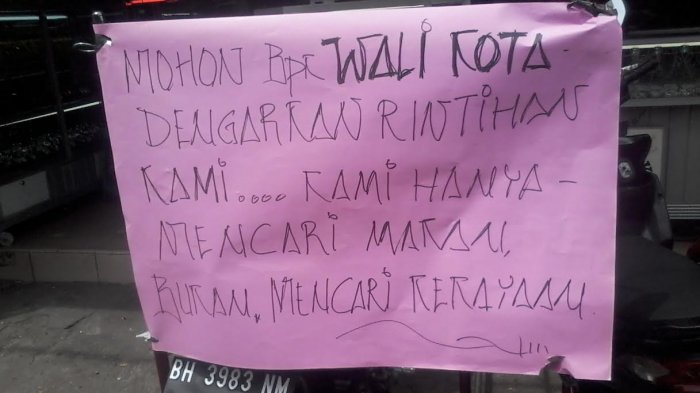 MOHON BPK WALI KOTA
DENGARKAN RINTIHAN
KAMI.... KAMI HANYA -
MENCARI MAKAN,
BUKAN, MENCARI KEKAYAAN
BH 3983 NM